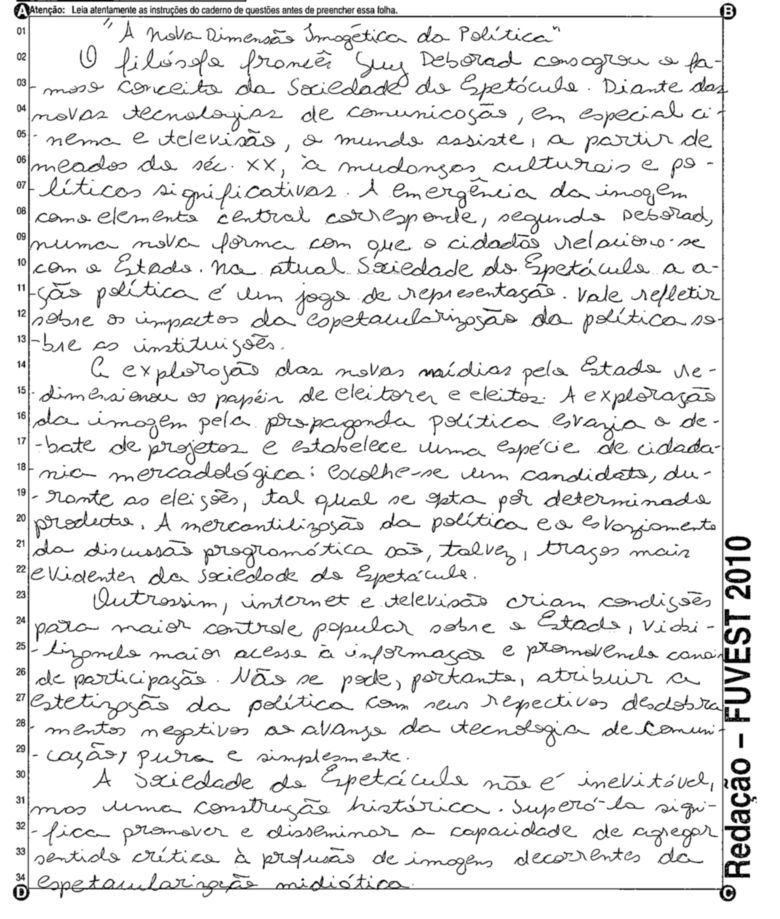 A Atenção: Leia atentamente as instruções do caderno de questões antes de preencher essa folha. B
01 "A Nova Dimensão Imagética da Política"
02 O filósofo francês Guy Deborad consagrou o fa-
03 -moso conceito da Sociedade do Espetáculo. Diante das
04 novas tecnologias de comunicação, em especial ci-
05 -nema e televisão, o mundo assiste, a partir de
06 meados do séc. XX, à mudanças culturais e po-
07 -líticas significativas. A emergência da imagem
08 como elemento central corresponde, segundo Deborad,
09 numa nova forma com que o cidadão relaciona-se
10 com o Estado. Na atual Sociedade do Espetáculo a a-
11 -ção política é um jogo de representação. Vale refletir
12 sobre os impactos da espetacularização da política so-
13 -bre as instituições.
14 A exploração das novas mídias pelo Estado re-
15 -dimensionou os papéis de eleitores e eleitos. A exploração
16 da imagem pela propaganda política esvazia o de-
17 -bate de projetos e estabelece uma espécie de cidada-
18 -nia mercadológica: escolhe-se um candidato, du-
19 -rante as eleições, tal qual se opta por determinado
20 produto. A mercantilização da política e o esvaziamento
21 da discussão programática são, talvez, traços mais
22 evidentes da Sociedade do Espetáculo.
23 Outrossim, internet e televisão criam condições
24 para maior controle popular sobre o Estado, viabi-
25 -lizando maior acesso à informação e promovendo canais
26 de participação. Não se pode, portanto, atribuir a
27 estetização da política com seus respectivos desdobra
28 -mentos negativos ao avanço da tecnologia de comuni-
29 -cação, pura e simplesmente.
30 A Sociedade do Espetáculo não é inevitável,
31 mas uma construção histórica. Superá-la signi-
32 -fica promover e disseminar a capacidade de agregar
33 sentido crítico à profusão de imagens decorrentes da
34 espetacularização midiática.
D C
Redação – FUVEST 2010